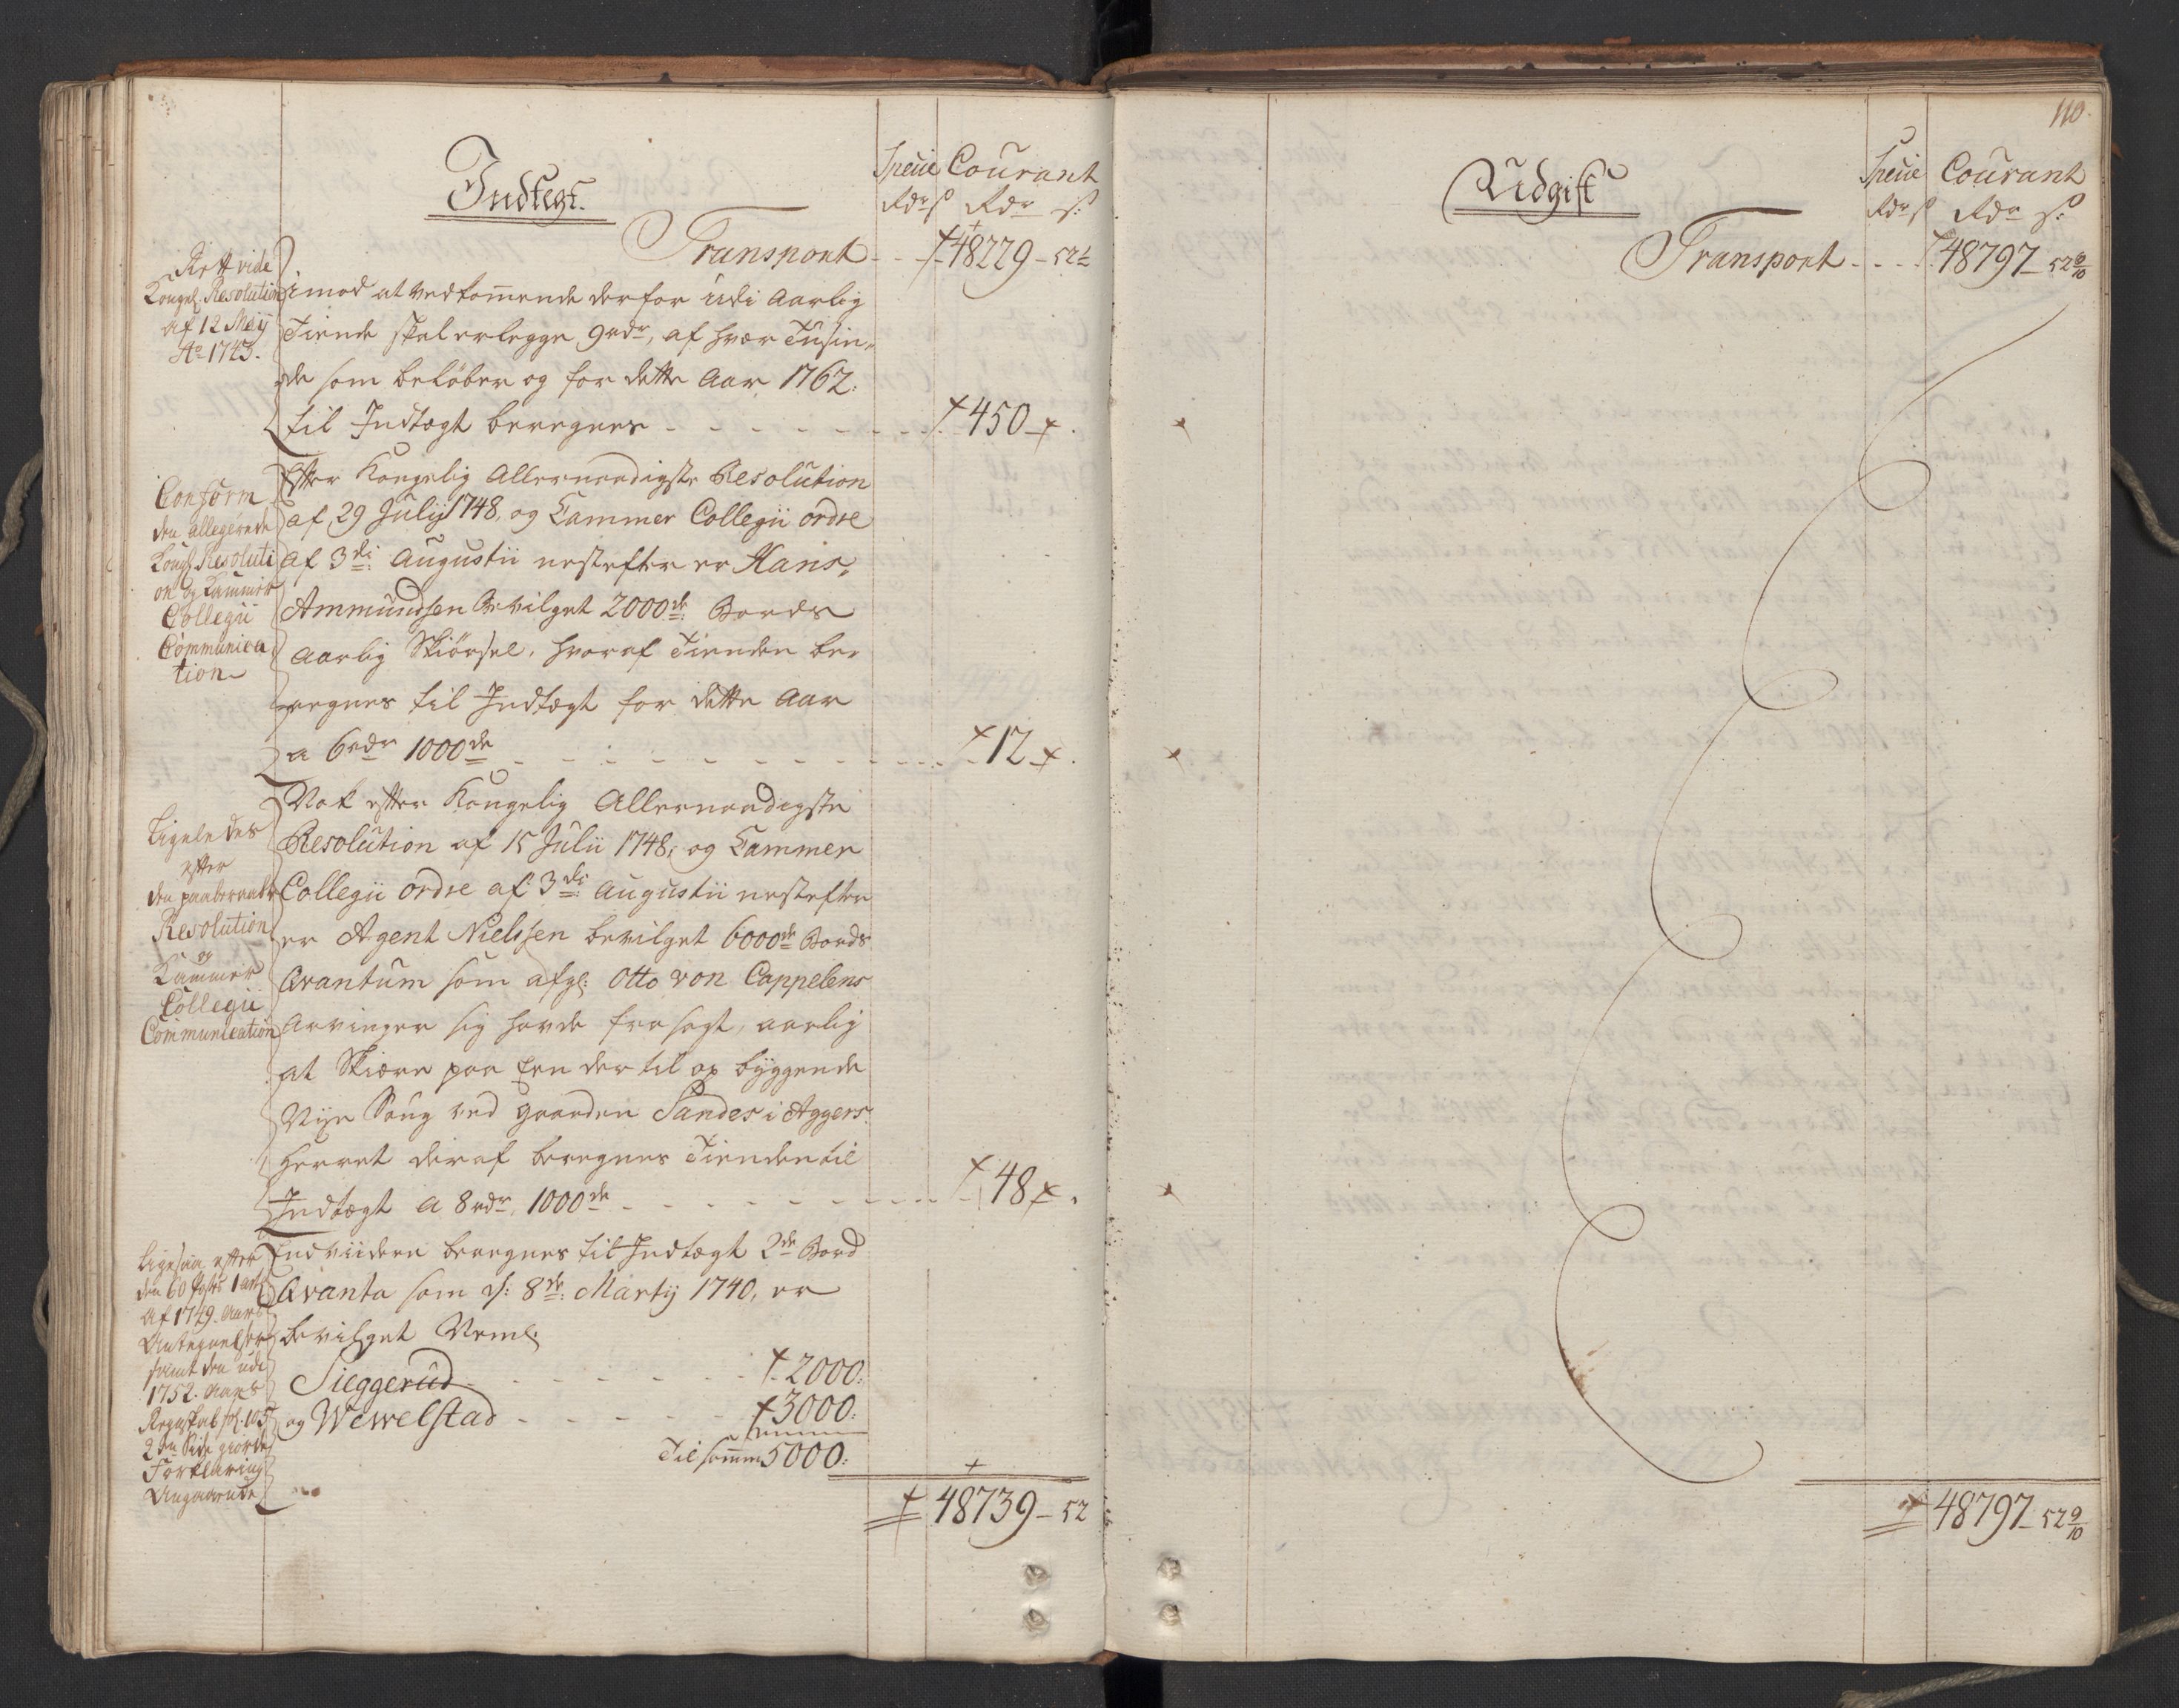 Indtegt.
Specie Courant
Rdr ß Rdr ß:
Transport - - 48229 - 52½
Rett vide
Kongel. Resolution
af 12 Maij
Ao 1743.
imod at vedkommende derfor udi Aarlig
Tiende skal erlegge 9 rdr, af hver Tusin,
de som beløber og for dette Aar 1762.
til Indtægt beregnes - - - 450 -
Conform
den allegerede
Kongl. Resoluti
on og Kammer
Collegii
Communica
tion
Efter Kongelig Allernaadigste Resolution
af 29 Julij 1748, og Cammer Collegii ordre
af 3di Augustii nestefter er Hans,
Ammundsen Bevilget 2000de Bords
Aarlig Skiørsel, hvoraf Tienden be,
regnes til Indtægt for dette Aar
a 6 rdr 1000de - - - 12
Ligeledes
efter
den paaberaabte
Resolution
og
Kammer
Collegii
Communication
Nok efter Kongelig Allernaadigste
Resolution af 15 Julii 1748, og Cammer
Collegii ordre af 3di Augustii nestefter
er Agent Nielssen bevilget 6000de Bords
Qvantum som afgl: Otto von Cappelens
Arvinger sig havde frasagt, aarlig
at Skiære paa Een der til op byggende
Nye Saug ved gaarden Sandes i Aggers
Herret deraf beregnes Tienden til
Indtægt a 8 rdr. 1000de - - - 48
Ligesaa efter
den 60 Posts 1 art
Af 1749 Aars
Antegnelser
samt den udi
1752. Aars
Regnskab fol. 105
2den Side giorde
Forklaring
Angaaende
Endviidere beregnes til Indtægt 2de Bord
Qvanta som d: 8de Martij 1740, er
bevilget Neml:
Sieggerud - - - 2000:
og Wewelstad - - - 3000:
Til sammen 5000:
48739 - 52
110.
Udgift
Specie Courant
Rdr ß Rdr ß:
Transport - - - 48797 - 52 9/10
48797 - 52 9/10